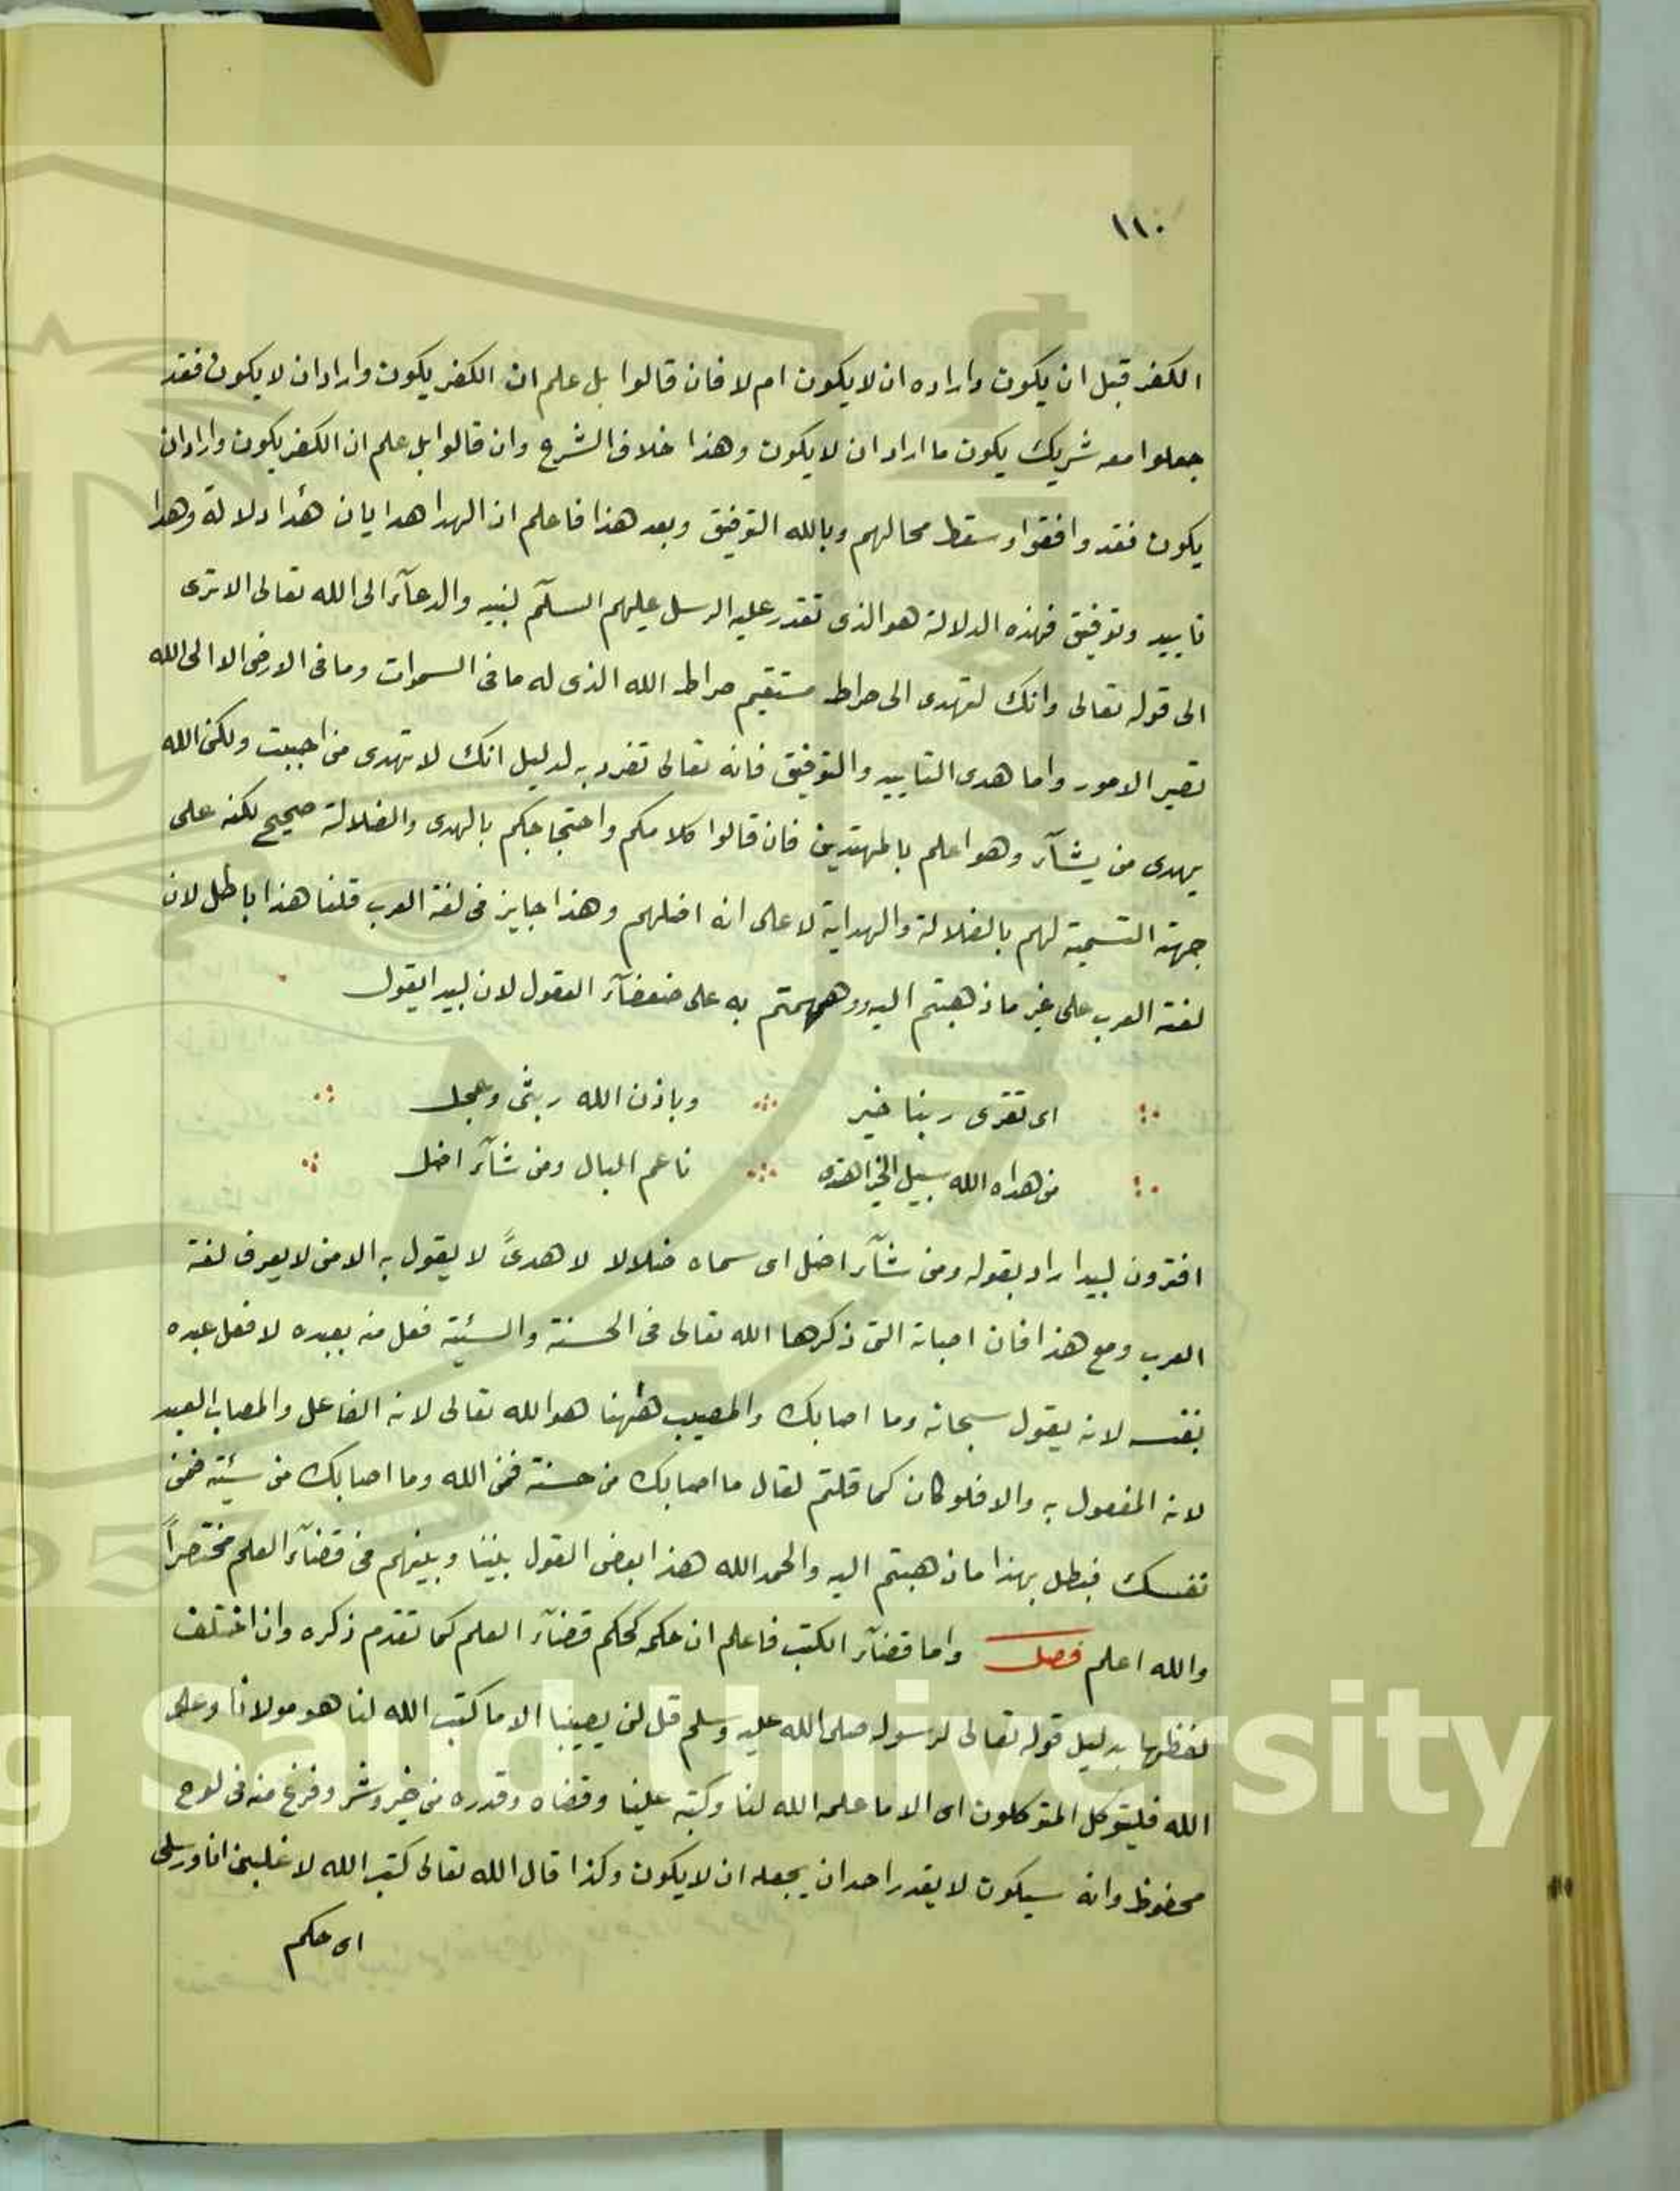 ١١٠
الكفر قبل ان يكون واراده ان لا يكون ام لا فان قالوا بل علم ان الكفر يكون واراد ان لا يكون فقد
جعلوا معه شريك يكون ما اراد ان لا يكون وهذا خلاف الشرع وان قالوا بل علم ان الكفر يكون واراد ان
يكون فقد وافقوا وسقط محالهم وبالله التوفيق وبعد هذا فاعلم ان الهدا هدايان هداء دلالة وهدا
تاييد وتوفيق فهذه الدلالة هو الذى تقدر عليه الرسل عليهم السلام لنبيه والدعاء الى الله تعالى الا ترى
الى قوله تعالى وانك لتهدى الى صراط مستقيم صراط الله الذى له ما فى السموات وما فى الارض الا الى الله
تصير الامور واما هدى التاييد والتوفيق فانه تعالى تفرد به لدليل انك لا تهدى من احببت ولكن الله
يهدى من يشاء وهو اعلم بالمهتدين فان قالوا كلامكم واحتجاجكم بالهدى والضلالة صحيح لكنه على
جهة التسمية لهم بالضلالة والهداية لا على انه اضلهم وهذا جايز فى لغة العرب قلنا هذا باطل لان
لغة العرب على غير ما ذهبتم اليه ووهمتم به على ضعفاء العقول لان لبيدا يقول
اى تقرى ربنا خير وباذن الله ربثى وعجل
من هداه الله سبيل الخير اهتدى ناعم البال ومن شاء اضل
افترون لبيدا راد بقوله ومن شاء اضل اى سماه ضلالا لا هدىً لا يقول به الا من لا يعرف لغة
العرب ومع هذا فان اصابة التى ذكرها الله تعالى فى الحسنة والسيئة فعل منه بعبده لا فعل عبده
بنفسه لانه يقول سبحانه وما اصابك والمصيب ههنا هو الله تعالى لانه الفاعل والمصاب العبد
لانه المفعول به والا فلو كان كما قلتم لقال ما اصابك من حسنة فمن الله وما اصابك من سيئة فمن
نفسك فبطل بهذا ما ذهبتم اليه والحمد الله هذا بعض القول بيننا وبينهم فى قضاء العلم مختصراً
والله اعلم فصل واما قضاء الكتب فاعلم ان حكمه كحكم قضاء العلم كما تقدم ذكره وان اختلف
لفظها بدليل قوله تعالى لرسوله صلى الله عليه وسلم قل لن يصيبنا الا ما كتب الله لنا هو مولانا وعلى
الله فليتوكل المتوكلون اى الا ما علمه الله لنا وكتبه علينا وقضاه وقدره من خير وشر وفرغ منه فى لوح
محفوظ وانه سيكون لا يقدر احد ان يجعله ان لا يكون وكذا قال الله تعالى كتب الله لاغلبن انا ورسلى
اى حكم
g Saud University
95